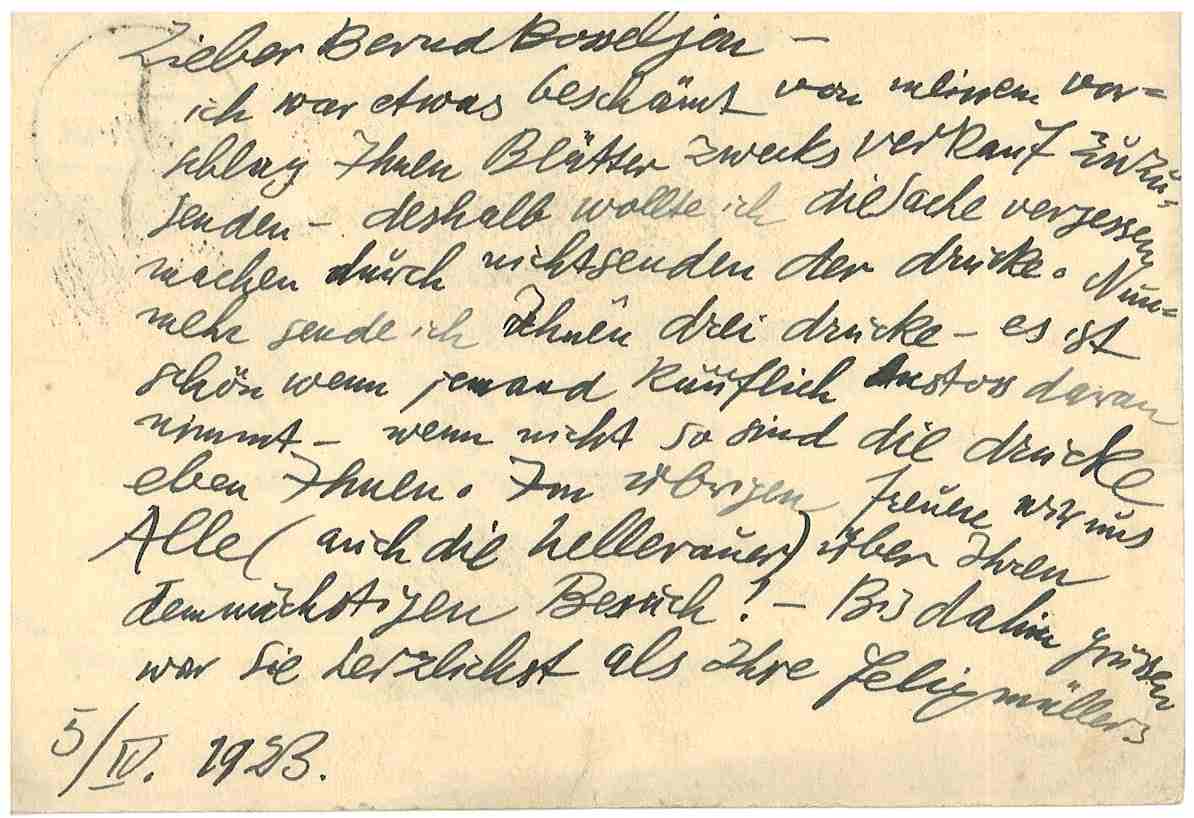 Lieber Bernd Bosseljon –
ich war etwas beschämt von meinem vor=
schlag Ihnen Blätter zwecks verkauf zuzu=
senden – deshalb wollte ich die Sache vergessen
machen durch nichtsenden der drucke. Nun=
mehr sende ich Ihnen drei drucke – es ist
schön wenn jemand käuflich Anstoss daran
nimmt – wenn nicht so sind die drucke
eben Ihnen. Im übrigen freuen wir uns
Alle (auch die hellerauer) über Ihren
demnächstigen Besuch! – Bis dahin grüssen
wir Sie herzlichst als Ihre felixmüllers
5/IV. 1923.